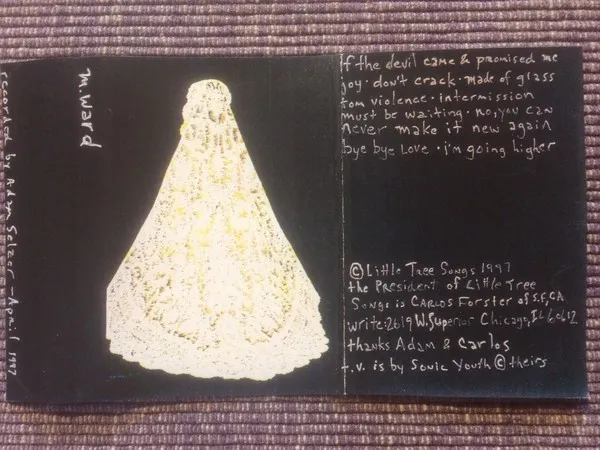 m. ward
recorded by Adam Selzer - April 1997
If the devil came & promised me
joy · don't crack · made of glass
tom violence · intermission
must be waiting · no, you can
never make it new again
bye bye Love · i'm going higher
© Little Tree Songs 1997
the President of Little Tree
Songs is CARLOS Forster of S.F., CA
write: 2619 W. Superior Chicago, IL 60612
thanks Adam & Carlos
t.v. is by Sonic Youth © theirs